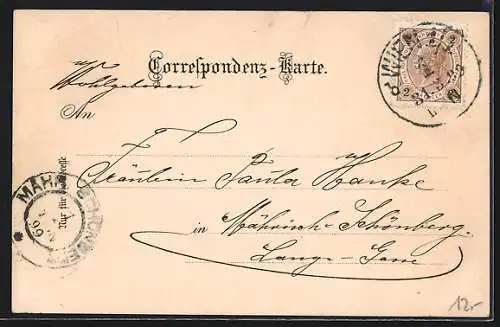 Correspondenz-Karte.
Wohlgeboren
An
Fräulein Paula Hanke
in Mährisch-Schönberg.
Lange-Gasse
Nur für die Adresse
MÄHR. SCHÖNBERG
99
WIEN
12.-